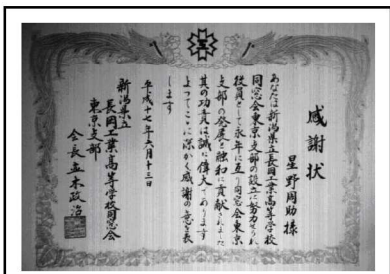 感謝状
星野周助様
あなたは新潟県立長岡工業高等学校
同窓会東京支部の設立に努力せられ
役員として永年に亘り同窓会東京
支部の発展と融和に貢献されました
其の功責は誠に偉大であります
よってここに深かく感謝の意を表
します
平成十七年六月十三日
新潟県立
長岡工業高等学校同窓会
東京支部
会長
木政治